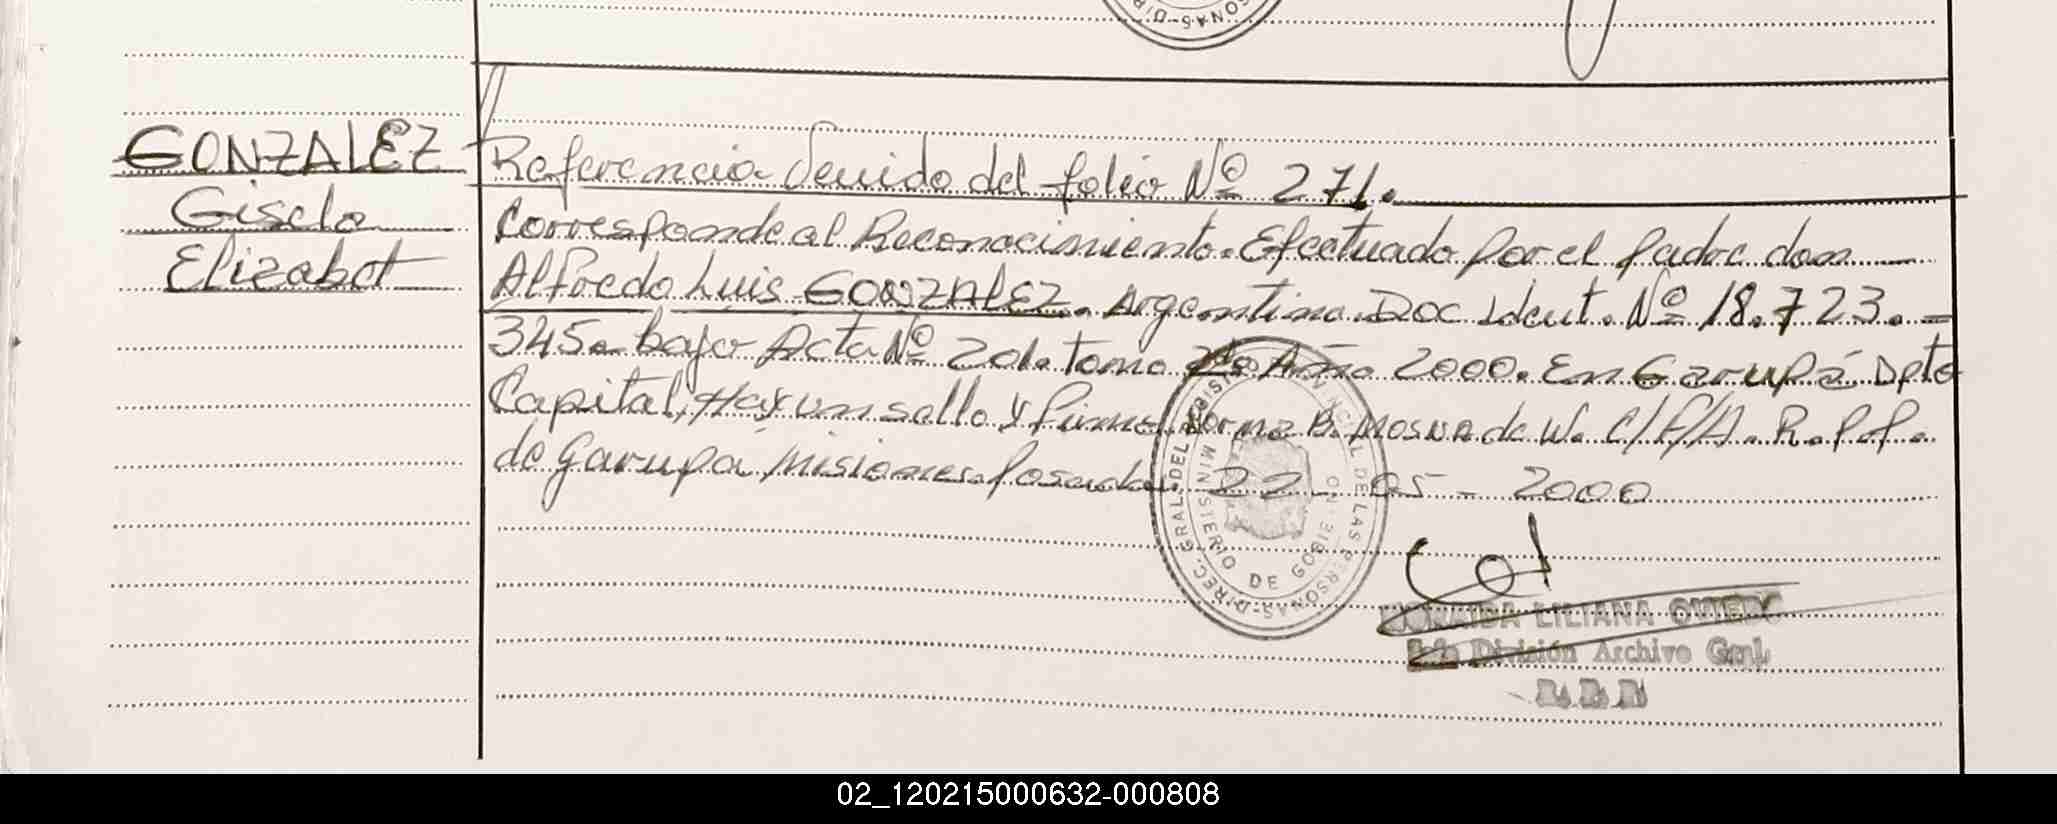 GONZALEZ
Gisela
Elizabet
Referencia Venido del folio Nº 271.
Corresponde al Reconocimiento. Efectuado por el padre don
Alfredo Luis GONZALEZ. Argentino. Doc Ident. Nº 18.723.-
345. bajo Acta Nº 201. tomo 2do Año 2000. En Garupá Dpto
Capital, Hay un sello y firma Norma B. Mosna de W. C/F/A. R.P.P.
de Garupa Misiones. Posadas. 22 - 05 - 2000
DIREC. GRAL. DEL REGISTRO PROVINCIAL DE LAS PERSONAS
MINISTERIO DE GOBIERNO
LILIANA OVIEDO
Jefe División Archivo Gral.
02_120215000632-000808